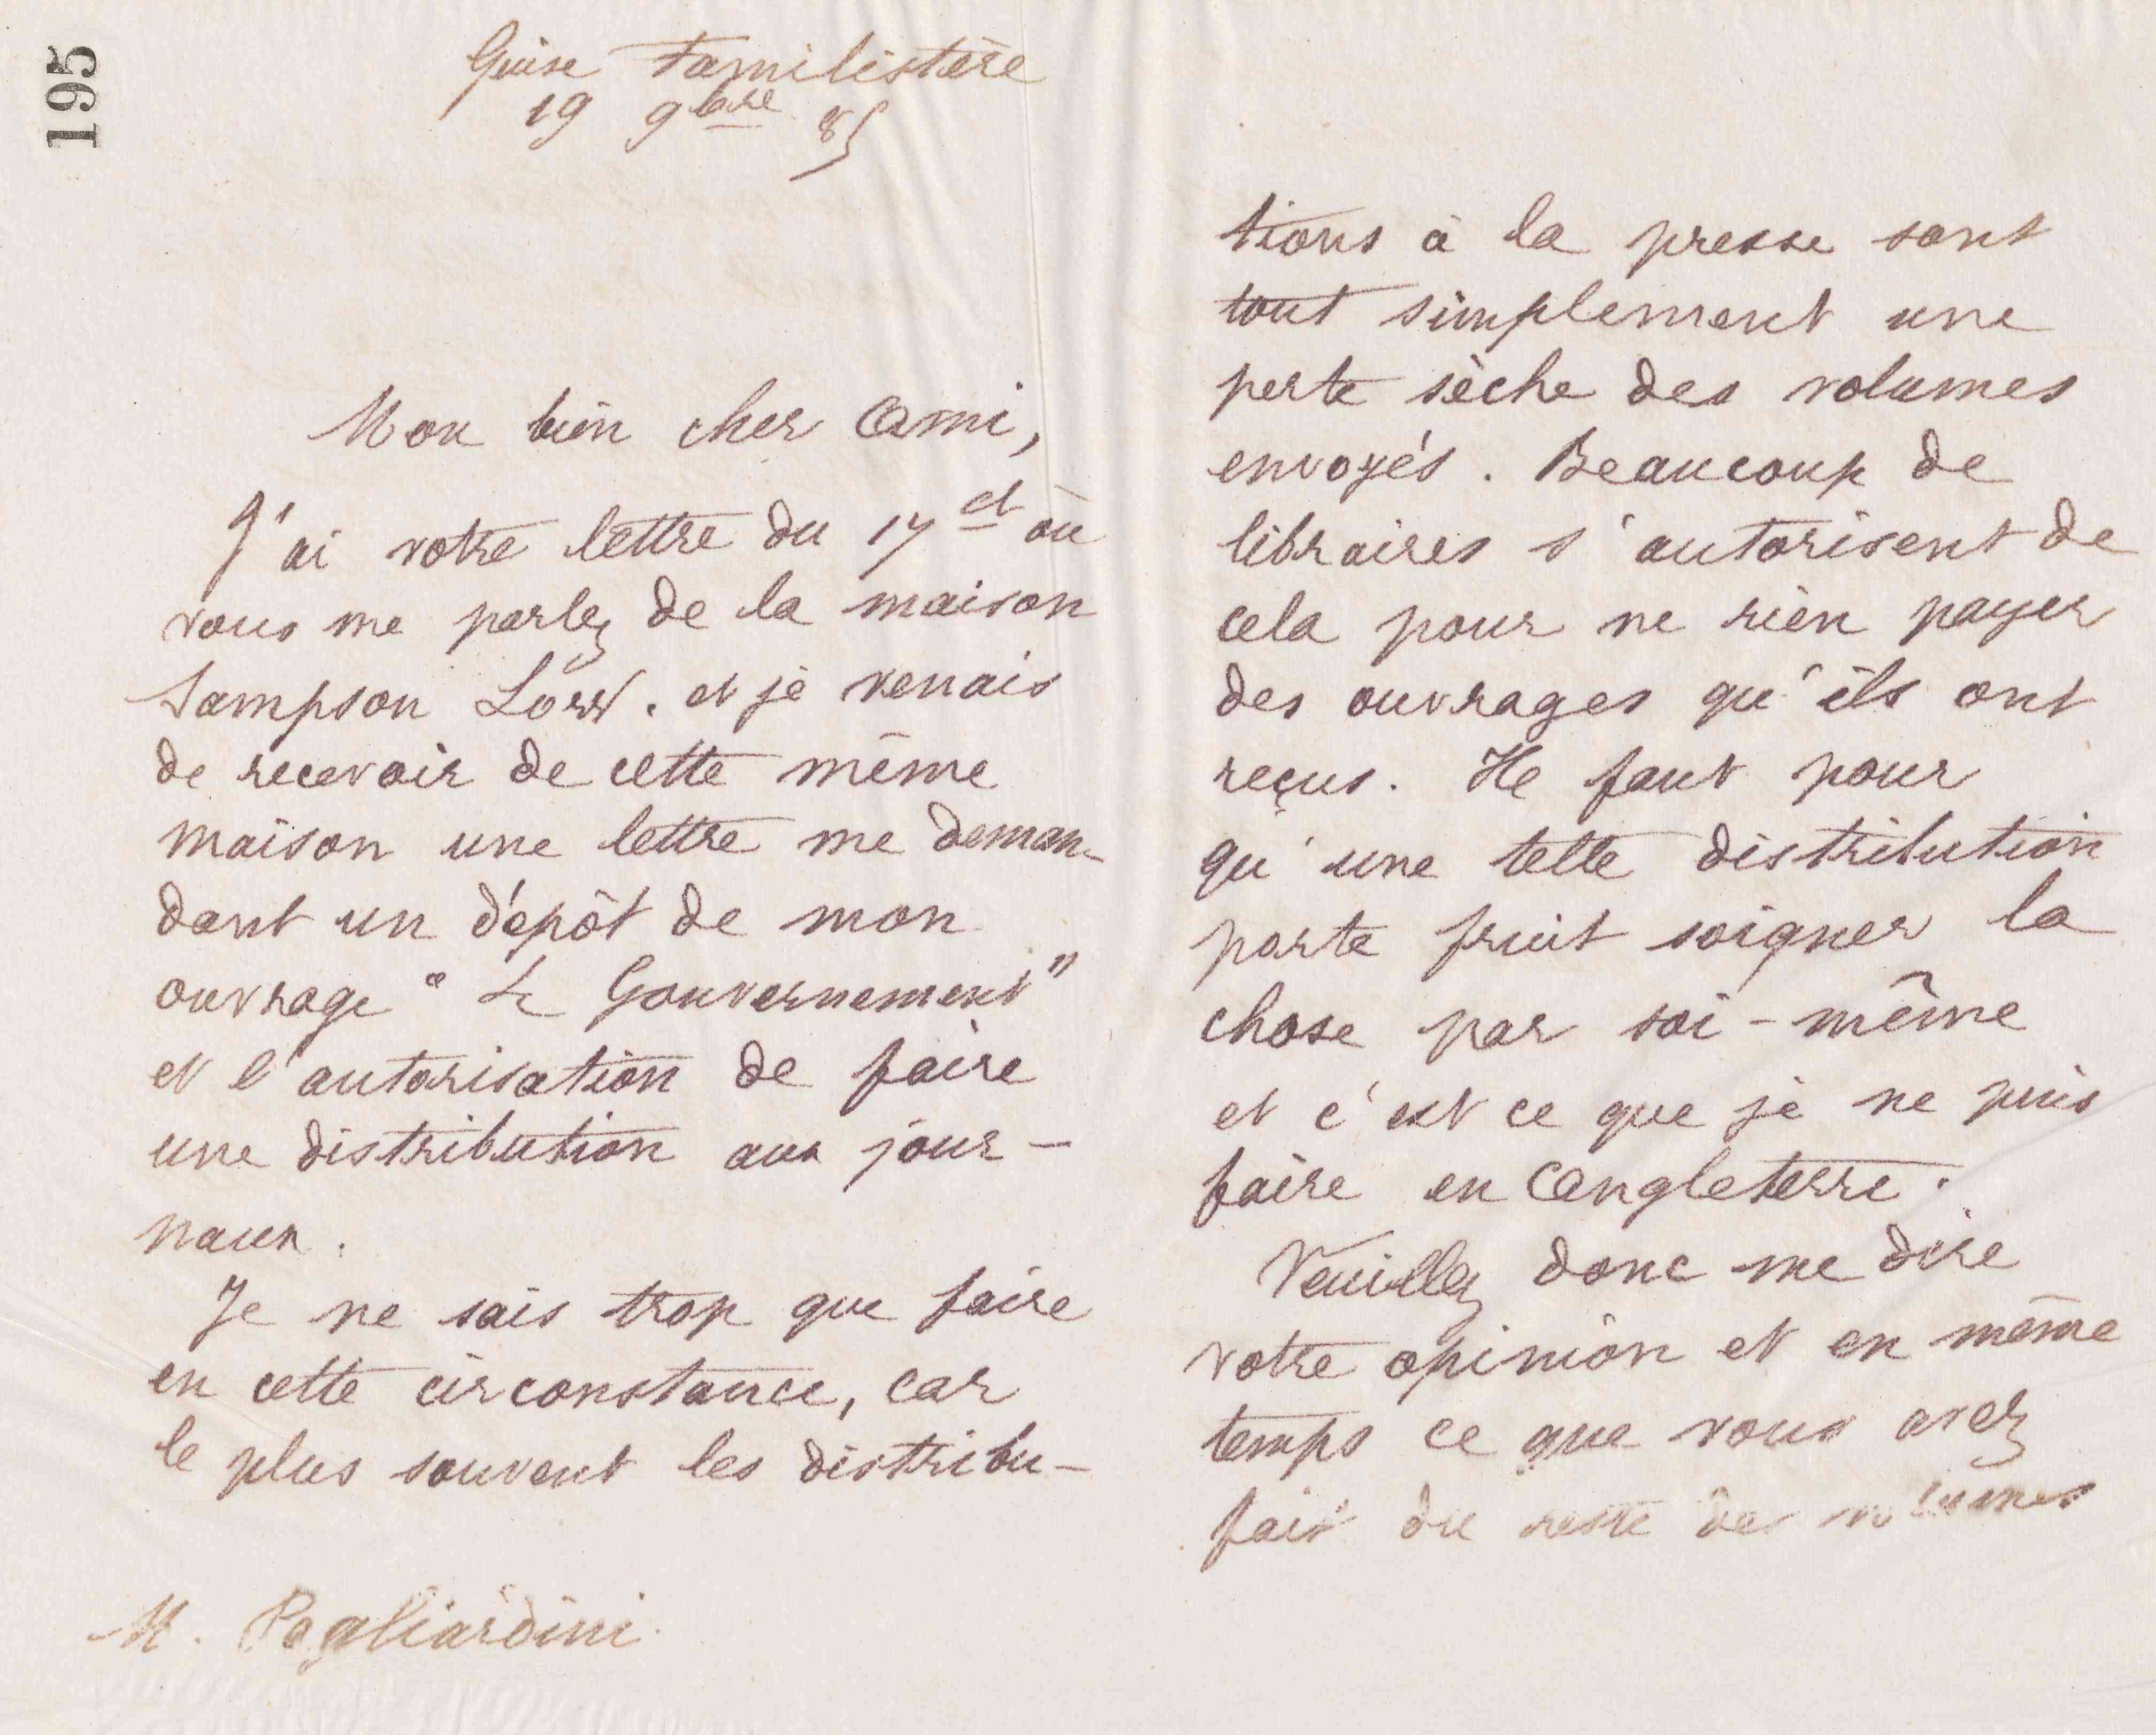 195
Guise Familistère
19 9bre 85
Mon bien cher Ami,
J'ai votre lettre du 17 ct où
vous me parlez de la maison
Sampson Low. et je venais
de recevoir de cette même
maison une lettre me deman-
dant un dépôt de mon
ouvrage " Le Gouvernement"
et l'autorisation de faire
une distribution aux jour-
naux.
Je ne sais trop que faire
en cette circonstance, car
le plus souvent les distribu-
M. Pagliardini.
tions à la presse sont
tout simplement une
perte sèche des volumes
envoyés. Beaucoup de
libraires s'autorisent de
cela pour ne rien payer
des ouvrages qu'ils ont
reçus. Il faut pour
qu'une telle distribution
porte fruit soigner la
chose par soi-même
et c'est ce que je ne puis
faire en Angleterre.
Veuillez donc me dire
votre opinion et en même
temps ce que vous avez
fait du reste des volumes